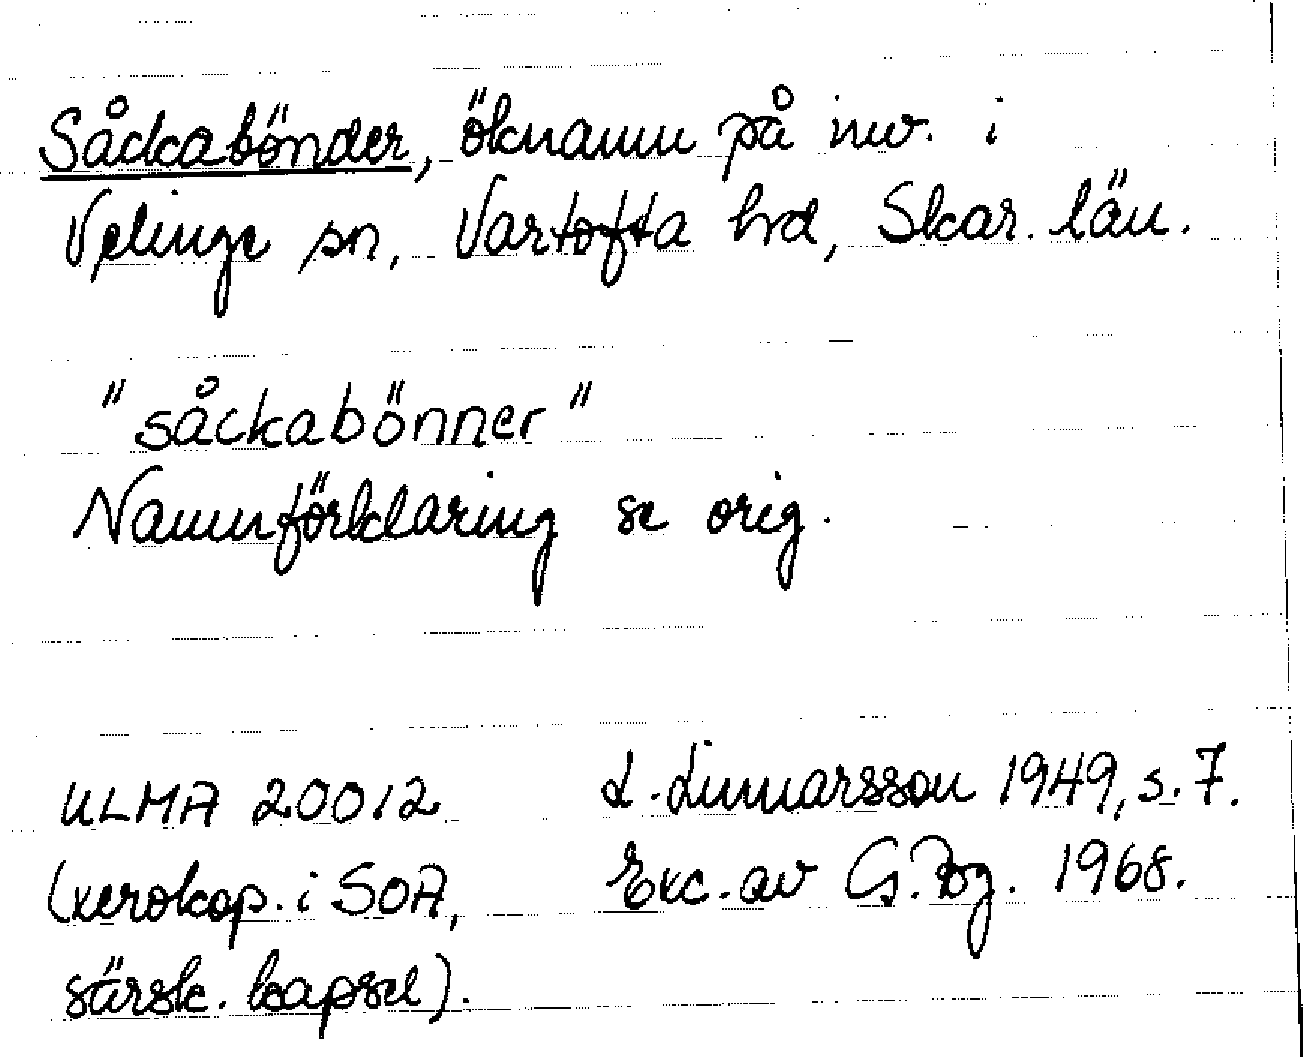 Såckabönder, öknamn på inv. i
Velinge sn, Vartofta hd, Skar. län.
"såckabönner"
Namnförklaring se orig.
ULMA 20012 L. Linnarsson 1949, s. 7.
(xerokop. i SOA, Exc. av G. Bg. 1968.
särsk. kapsel).